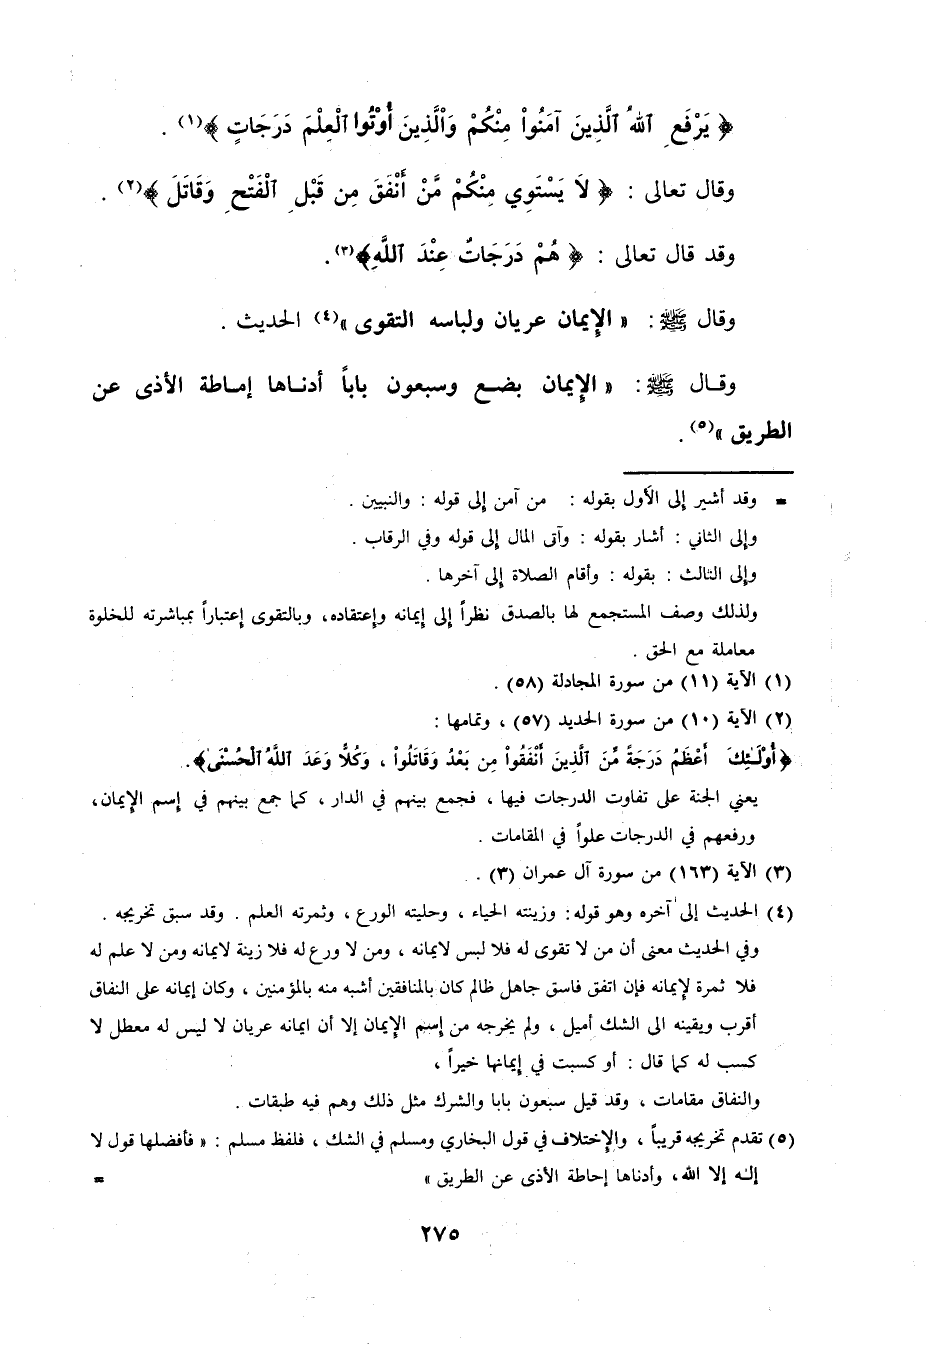 ﴿ يَرْفَعِ ٱللهُ ٱلَّذِينَ آمَنُواْ مِنْكُمْ وَٱلَّذِينَ أُوْتُوا ٱلْعِلْمَ دَرَجَاتٍ ﴾(١) .
وقال تعالى : ﴿ لَا يَسْتَوِي مِنْكُمْ مَّنْ أَنْفَقَ مِن قَبْلِ ٱلْفَتْحِ وَقَاتَلَ ﴾(٢) .
وقد قال تعالى : ﴿ هُمْ دَرَجَاتٌ عِنْدَ ٱللَّهِ﴾(٣).
وقال ﷺ : « الإِيمان عريان ولباسه التقوى »(٤) الحديث .
وقـال ﷺ : « الإِيمان بضـع وسبعون باباً أدنـاها إمـاطة الأذى عن
الطريق »(٥) .
= وقد أشير إلى الأول بقوله : من آمن إلى قوله : والنبيين .
وإلى الثاني : أشار بقوله : وآتى المال إلى قوله وفي الرقاب .
وإلى الثالث : بقوله : وأقام الصلاة إلى آخرها .
ولذلك وصف المستجمع لها بالصدق نظراً إلى إيمانه وإعتقاده، وبالتقوى إعتباراً بمباشرته للخلوة
معاملة مع الحق .
(١) الآية (١١) من سورة المجادلة (٥٨) .
(٢) الآية (١٠) من سورة الحديد (٥٧) ، وتمامها :
﴿أُوْلَـٰئِكَ أَعْظَمُ دَرَجَةً مِّنَ ٱلَّذِينَ أَنْفَقُواْ مِن بَعْدُ وَقَاتَلُواْ ، وَكُلًّا وَعَدَ ٱللَّهُ ٱلْحُسْنَىٰ﴾.
يعني الجنة على تفاوت الدرجات فيها ، فجمع بينهم في الدار ، كما جمع بينهم في إسم الإيمان،
ورفعهم في الدرجات علواً في المقامات .
(٣) الآية (١٦٣) من سورة آل عمران (٣) .
(٤) الحديث إلى آخره وهو قوله: وزينته الحياء ، وحليته الورع ، وثمرته العلم . وقد سبق تخريجه .
وفي الحديث معنى أن من لا تقوى له فلا لبس لايمانه ، ومن لا ورع له فلا زينة لايمانه ومن لا علم له
فلا ثمرة لإيمانه فإن اتفق فاسق جاهل ظالم كان بالمنافقين أشبه منه بالمؤمنين ، وكان إيمانه على النفاق
أقرب ويقينه الى الشك أميل ، ولم يخرجه من إسم الإيمان إلا أن ايمانه عريان لا ليس له معطل لا
كسب له كما قال : أو كسبت في إيمانها خيراً ،
والنفاق مقامات ، وقد قيل سبعون بابا والشرك مثل ذلك وهم فيه طبقات .
(٥) تقدم تخريجه قريباً ، والإختلاف في قول البخاري ومسلم في الشك ، فلفظ مسلم : « فأفضلها قول لا
إله إلا الله، وأدناها إحاطة الأذى عن الطريق » =
٢٧٥